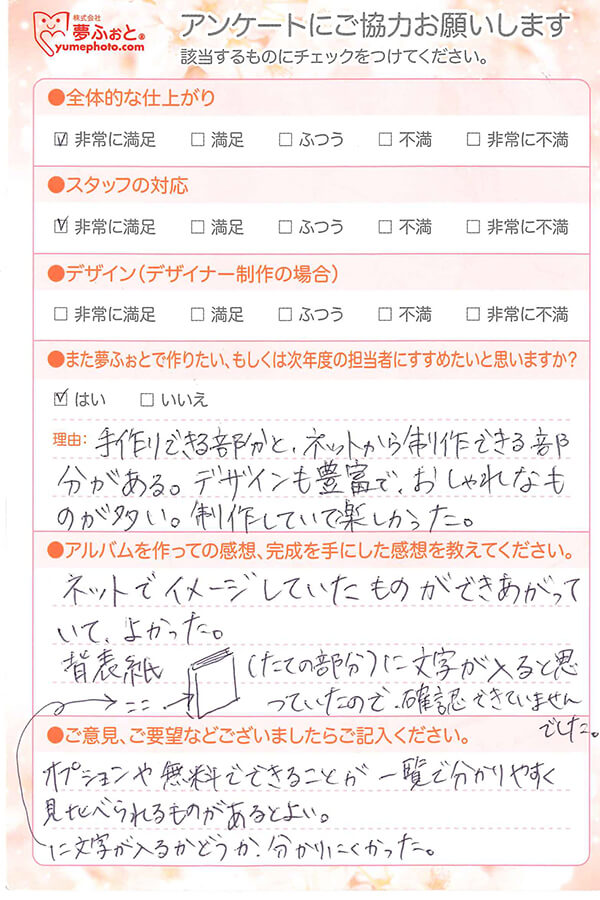 株式会社
夢ふぉと®
yumephoto.com
アンケートにご協力お願いします
該当するものにチェックをつけてください。
●全体的な仕上がり
☑ 非常に満足 □ 満足 □ ふつう □ 不満 □ 非常に不満
●スタッフの対応
☑ 非常に満足 □ 満足 □ ふつう □ 不満 □ 非常に不満
●デザイン(デザイナー制作の場合)
□ 非常に満足 □ 満足 □ ふつう □ 不満 □ 非常に不満
●また夢ふぉとで作りたい、もしくは次年度の担当者にすすめたいと思いますか?
☑ はい □ いいえ
理由: 手作りできる部分と、ネットから制作できる部
分がある。デザインも豊富で、おしゃれなも
のが多い。制作していて楽しかった。
●アルバムを作っての感想、完成を手にした感想を教えてください。
ネットでイメージしていたものができあがって
いて、よかった。
背表紙 (たての部分)に文字が入ると思
→ここ→ っていたので、確認できていません
でした。
●ご意見、ご要望などございましたらご記入ください。
オプションや無料でできることが一覧で分かりやすく
見比べられるものがあるとよい。
に文字が入るかどうか、分かりにくかった。